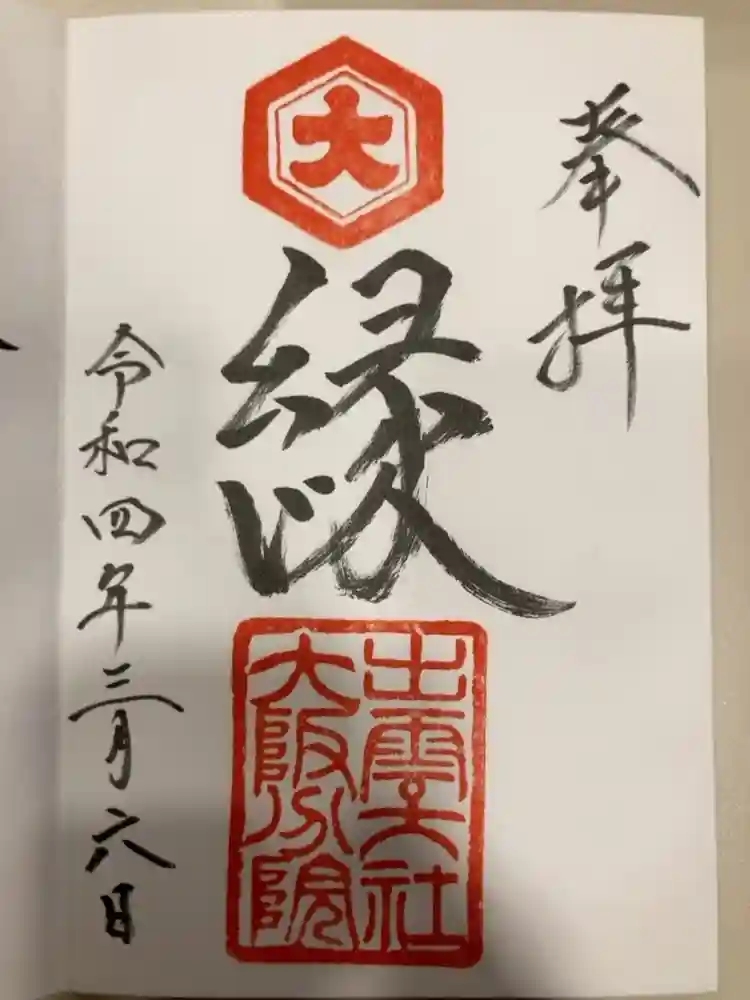 奉拝
大
縁
出雲大社
大阪分院
令和四年三月六日